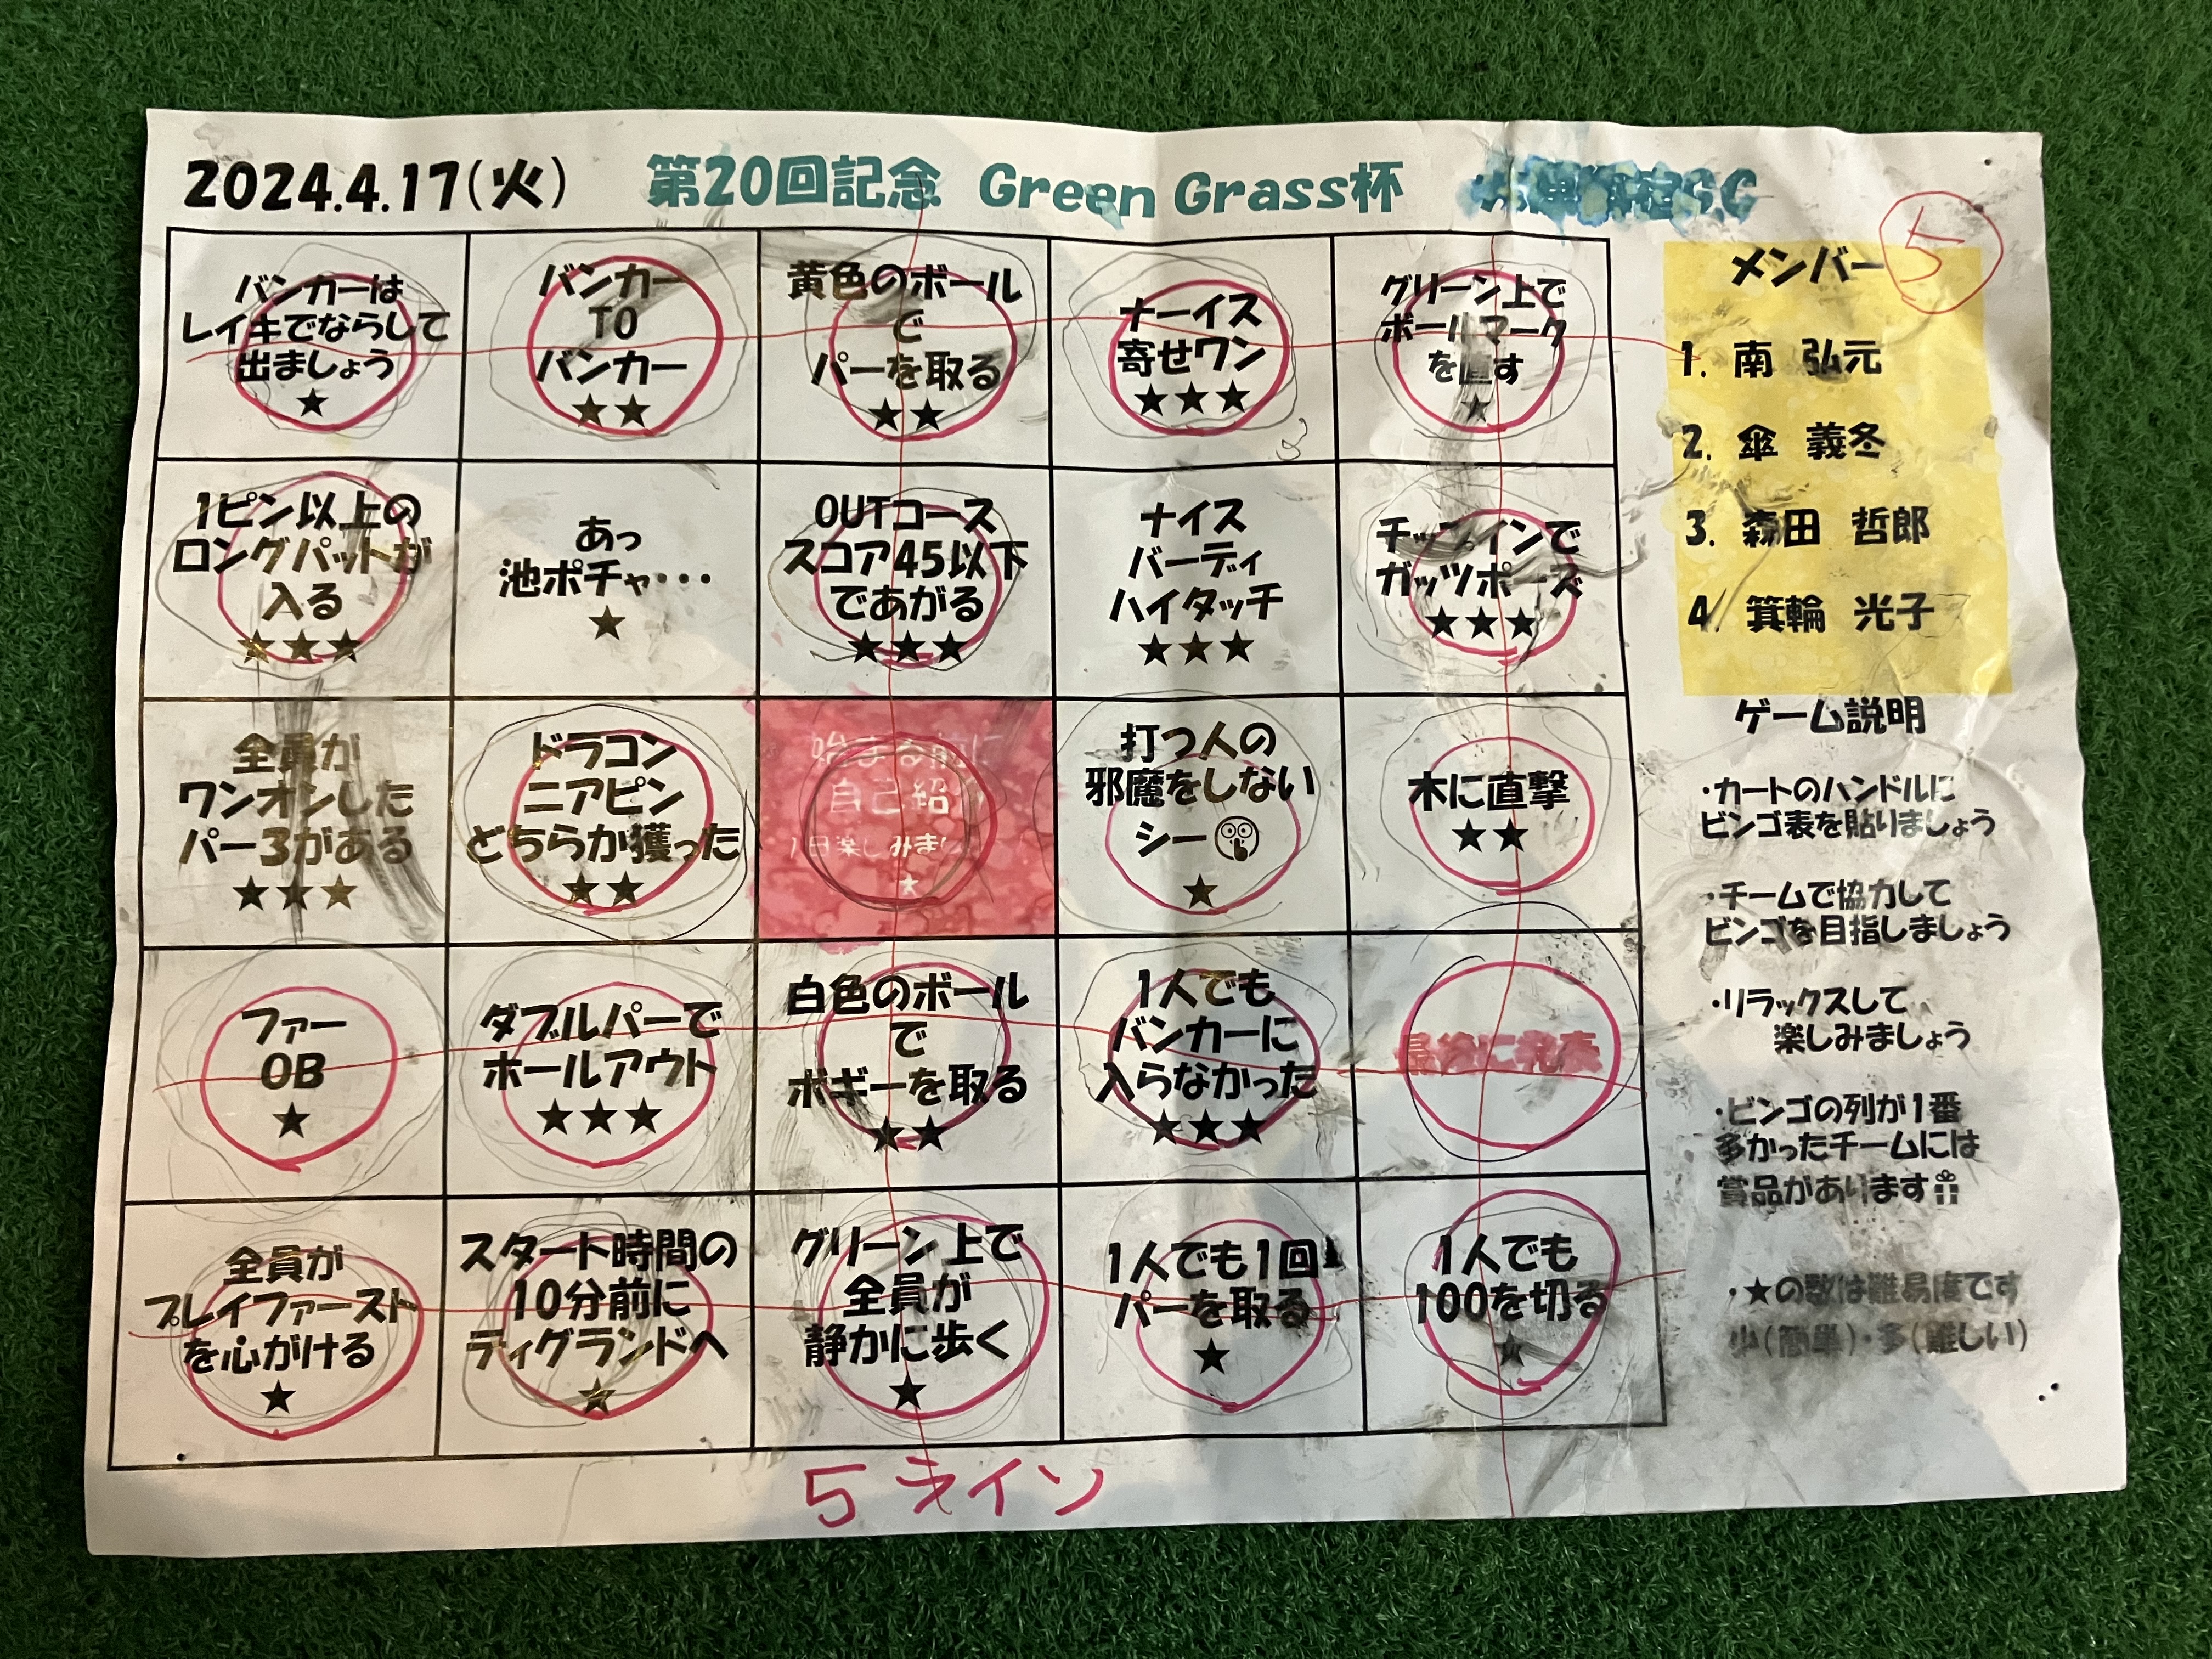 2024.4.17(火) 第20回記念 Green Grass杯
⑤
バンカーは
レイキでならして
出ましょう
★
バンカー
TO
バンカー
★★
黄色のボール
で
パーを取る
★★
ナーイス
寄せワン
★★★
グリーン上で
ボールマーク
を直す
★
1ピン以上の
ロングパットが
入る
★★★
あっ
池ポチャ・・・
★
OUTコース
スコア45以下
であがる
★★★
ナイス
バーディ
ハイタッチ
★★★
チップインで
ガッツポーズ
★★★
全員が
ワンオンした
パー3がある
★★★
ドラコン
ニアピン
どちらか獲った
★★
始まる前に
自己紹
1日楽しみま
★
打つ人の
邪魔をしない
シー🤫
★
木に直撃
★★
ファー
OB
★
ダブルパーで
ホールアウト
★★★
白色のボール
で
ボギーを取る
★★
1人でも
バンカーに
入らなかった
★★★
最後に発表
全員が
プレイファースト
を心がける
★
スタート時間の
10分前に
ティグランドへ
★
グリーン上で
全員が
静かに歩く
★
1人でも1回
パーを取る
★
1人でも
100を切る
★
メンバー
1. 南 弘元
2. 傘 義冬
3. 森田 哲郎
4. 箕輪 光子
ゲーム説明
・カートのハンドルに
ビンゴ表を貼りましょう
・チームで協力して
ビンゴを目指しましょう
・リラックスして
楽しみましょう
・ビンゴの列が1番
多かったチームには
賞品があります🎁
・★の数は難易度です
少(簡単)・多(難しい)
5ライン